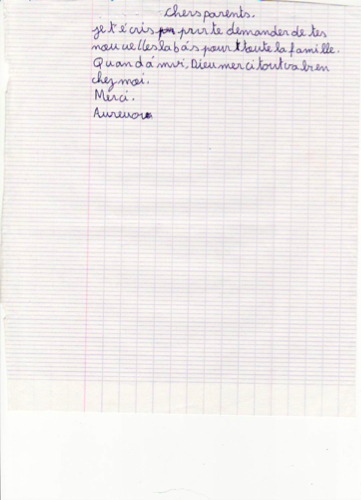 chers parents.
je t'écris pour te demander de tes
nouvelles labàs pour toute la famille.
Quand à moi, Dieu merci tout va bien
chez moi.
Merci.
Aurevoir